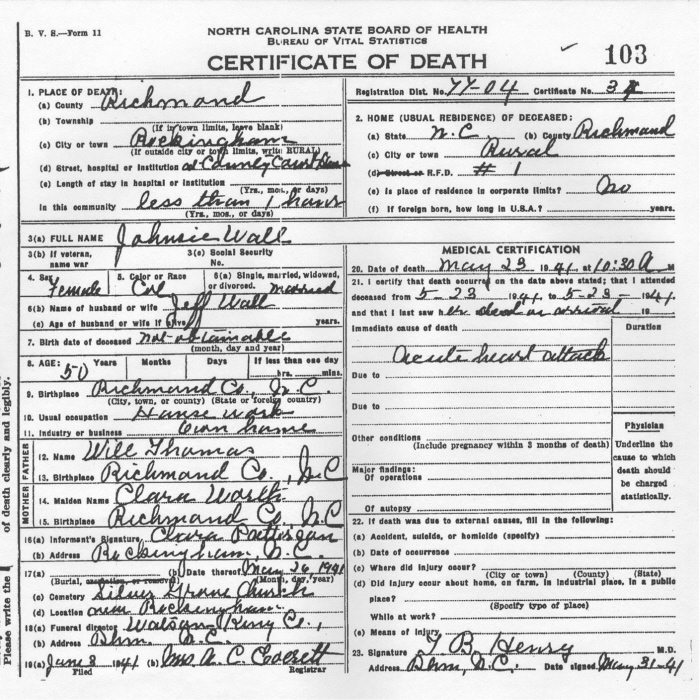 B. V. S.—Form 11
NORTH CAROLINA STATE BOARD OF HEALTH
BUREAU OF VITAL STATISTICS
CERTIFICATE OF DEATH
103
1. PLACE OF DEATH:
(a) County Richmond
(b) Township
(If in town limits, leave blank)
(c) City or town Rockingham
(If outside city or town limits, write RURAL)
(d) Street, hospital or institution at County Court
(e) Length of stay in hospital or institution
(Yrs., mos., or days)
In this community less than 1 hour
(Yrs., mos., or days)
Registration Dist. No. 77-04 Certificate No. 3
2. HOME (USUAL RESIDENCE) OF DECEASED:
(a) State N.C. (b) County Richmond
(c) City or town Rural
(d) Street or R.F.D. # 1
(e) Is place of residence in corporate limits? No
(f) If foreign born, how long in U.S.A.? years.
3(a) FULL NAME Johnsie Wall
3(b) If veteran, name war
3(c) Social Security No.
4. Sex Female
5. Color or Race Col
6(a) Single, married, widowed, or divorced. married
6(b) Name of husband or wife Jeff Wall
(c) Age of husband or wife if alive years.
7. Birth date of deceased not obtainable
(month, day and year)
8. AGE: Years 50 Months Days If less than one day hrs. mins.
9. Birthplace Richmond Co., N.C.
(City, town, or county) (State or foreign country)
10. Usual occupation House work
11. Industry or business Own home
FATHER
12. Name Will Thomas
13. Birthplace Richmond Co., N.C
MOTHER
14. Maiden Name Clara Worth
15. Birthplace Richmond Co., N.C
16(a) Informant's Signature Clara
(b) Address Rockingham, N.C.
17(a) (b) Date thereof May 26, 1941
(Burial, cremation, or removal) (Month, day, year)
(c) Cemetery Silver Grove Church
(d) Location near Rockingham
18(a) Funeral director Watson King Co.,
(b) Address Rhm. N.C.
19(a) June 3 1941 (b) Mrs. A. C. Everett
Filed Registrar
MEDICAL CERTIFICATION
20. Date of death May 23 1941 at 10:30 A M
21. I certify that death occurred on the date above stated; that I attended
deceased from 5-23 1941 to 5-23- 1941
and that I last saw her dead on arrival 19
Immediate cause of death Duration
Acute heart attack
Due to
Due to
Other conditions
(Include pregnancy within 3 months of death)
Major findings:
Of operations
Of autopsy
Physician
Underline the cause to which death should be charged statistically.
22. If death was due to external causes, fill in the following:
(a) Accident, suicide, or homicide (specify)
(b) Date of occurrence
(c) Where did injury occur?
(City or town) (County) (State)
(d) Did injury occur about home, on farm, in industrial place, in a public
place?
(Specify type of place)
While at work?
(e) Means of injury
23. Signature T B Henry M.D.
Address Rhm, N.C. Date signed May 31-41
of death clearly and legibly.
Please write the